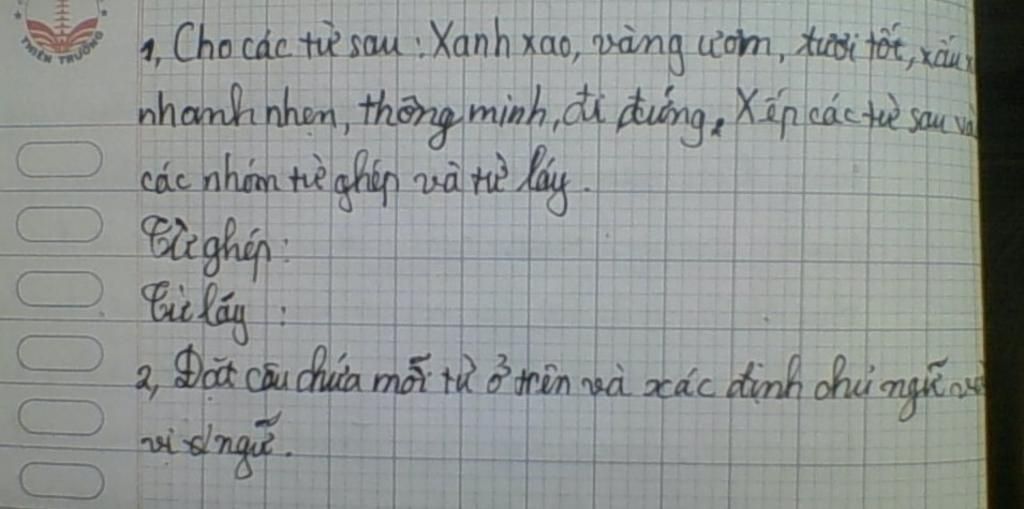 THIÊN TRƯỜNG
1, Cho các từ sau : Xanh xao, vàng ươm, tươi tốt,
nhanh nhẹn, thông minh, đi đứng. Xếp các từ sau
các nhóm từ ghép và từ láy.
Từ ghép :
Từ láy :
2, Đặt câu chứa mỗi từ ở trên và xác định chủ ngữ
vị ngữ.